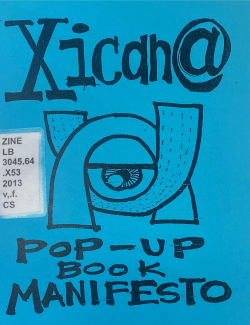 Xican@
ZINE
LB
3045.64
.X53
2013
v,.f.
CS
POP-UP
BOOK
MANIFESTO